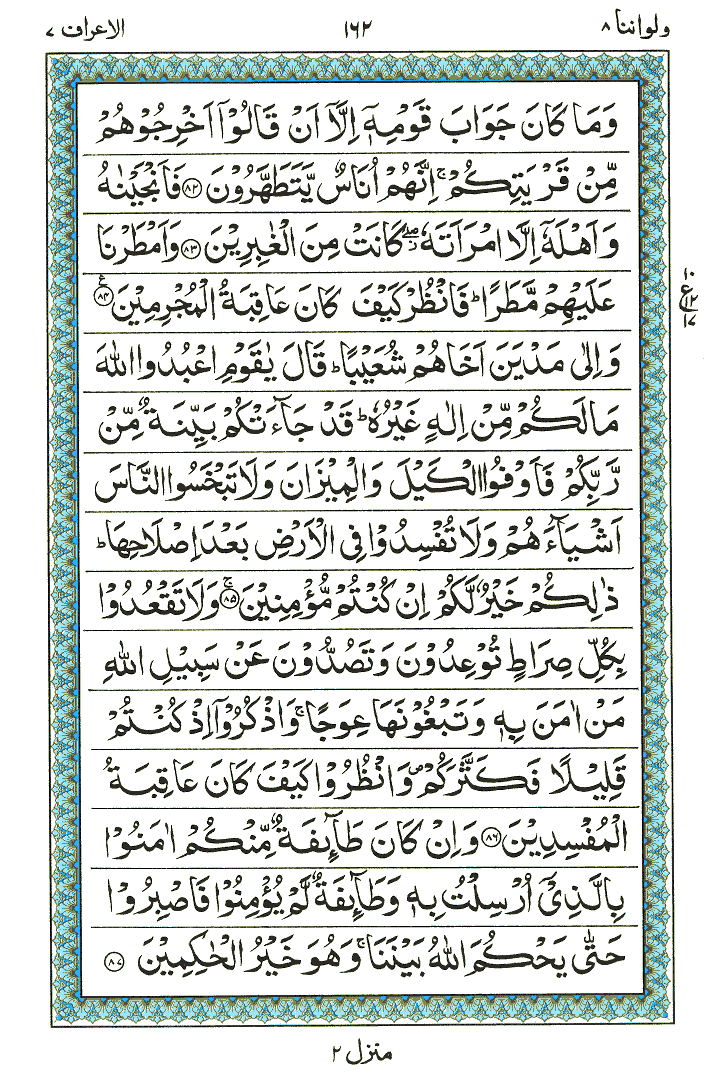 ولواننا ٨ ١٦٢ الاعراف ٧
وَمَا كَانَ جَوَابَ قَوْمِهٖٓ اِلَّآ اَنْ قَالُوْٓا اَخْرِجُوْهُمْ
مِّنْ قَرْيَتِكُمْ ۚ اِنَّهُمْ اُنَاسٌ يَّتَطَهَّرُوْنَ ﴿٨٢﴾ فَاَنْجَيْنٰهُ
وَاَهْلَهٗٓ اِلَّا امْرَاَتَهٗ ۖ كَانَتْ مِنَ الْغٰبِرِيْنَ ﴿٨٣﴾ وَاَمْطَرْنَا
عَلَيْهِمْ مَّطَرًا ؕ فَانْظُرْ كَيْفَ كَانَ عَاقِبَةُ الْمُجْرِمِيْنَ ﴿٨٤﴾ ع
١٠
ع
١٢
١٧
وَاِلٰى مَدْيَنَ اَخَاهُمْ شُعَيْبًا ؕ قَالَ يٰقَوْمِ اعْبُدُوا اللّٰهَ
مَا لَكُمْ مِّنْ اِلٰهٍ غَيْرُهٗ ؕ قَدْ جَآءَتْكُمْ بَيِّنَةٌ مِّنْ
رَّبِّكُمْ فَاَوْفُوا الْكَيْلَ وَالْمِيْزَانَ وَلَا تَبْخَسُوا النَّاسَ
اَشْيَآءَهُمْ وَلَا تُفْسِدُوْا فِى الْاَرْضِ بَعْدَ اِصْلَاحِهَا ؕ
ذٰلِكُمْ خَيْرٌ لَّكُمْ اِنْ كُنْتُمْ مُّؤْمِنِيْنَ ﴿٨٥﴾ ۚ وَلَا تَقْعُدُوْا
بِكُلِّ صِرَاطٍ تُوْعِدُوْنَ وَتَصُدُّوْنَ عَنْ سَبِيْلِ اللّٰهِ
مَنْ اٰمَنَ بِهٖ وَتَبْغُوْنَهَا عِوَجًا ۚ وَاذْكُرُوْٓا اِذْ كُنْتُمْ
قَلِيْلًا فَكَثَّرَكُمْ ۖ وَانْظُرُوْا كَيْفَ كَانَ عَاقِبَةُ
الْمُفْسِدِيْنَ ﴿٨٦﴾ وَاِنْ كَانَ طَآئِفَةٌ مِّنْكُمْ اٰمَنُوْا
بِالَّذِىْٓ اُرْسِلْتُ بِهٖ وَطَآئِفَةٌ لَّمْ يُؤْمِنُوْا فَاصْبِرُوْا
حَتّٰى يَحْكُمَ اللّٰهُ بَيْنَنَا ۚ وَهُوَ خَيْرُ الْحٰكِمِيْنَ ﴿٨٧﴾
منزل ٢